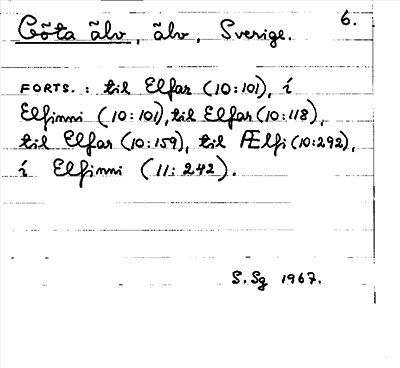 Göta älv, älv, Sverige. 6.
FORTS.: til Elfar (10:101), í
Elfinni (10:101), til Elfar (10:118),
til Elfar (10:159), til Ælfi (10:292),
í Elfinni (11:242).
S.Sg 1967.